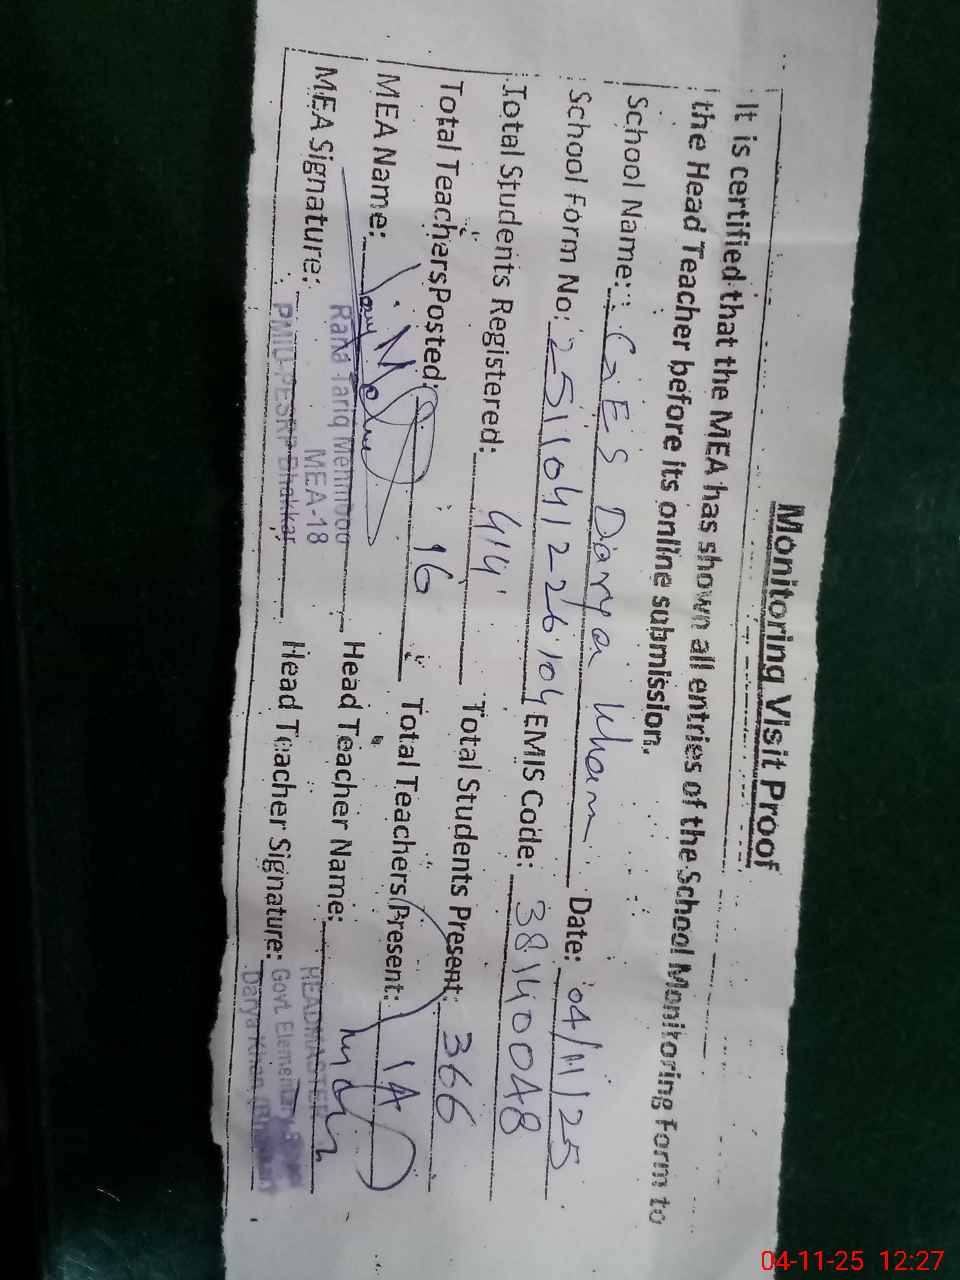 Monitoring Visit Proof
It is certified that the MEA has shown all entries of the School Monitoring Form to
the Head Teacher before its online submission.
School Name: GES Darya Khan Date: 04/11/25
School Form No: 2511041226104 EMIS Code: 38140048
Total Students Registered: 414 Total Students Present: 366
Total Teachers Posted: 16 Total Teachers Present: 14
MEA Name: Head Teacher Name:
Rana Tariq Mehmood HEADMASTER
MEA-18
MEA Signature: Head Teacher Signature:
PMIU-PESRP Bhakkar Govt. Elementary School
Darya Khan (Bhakkar)
04-11-25 12:27